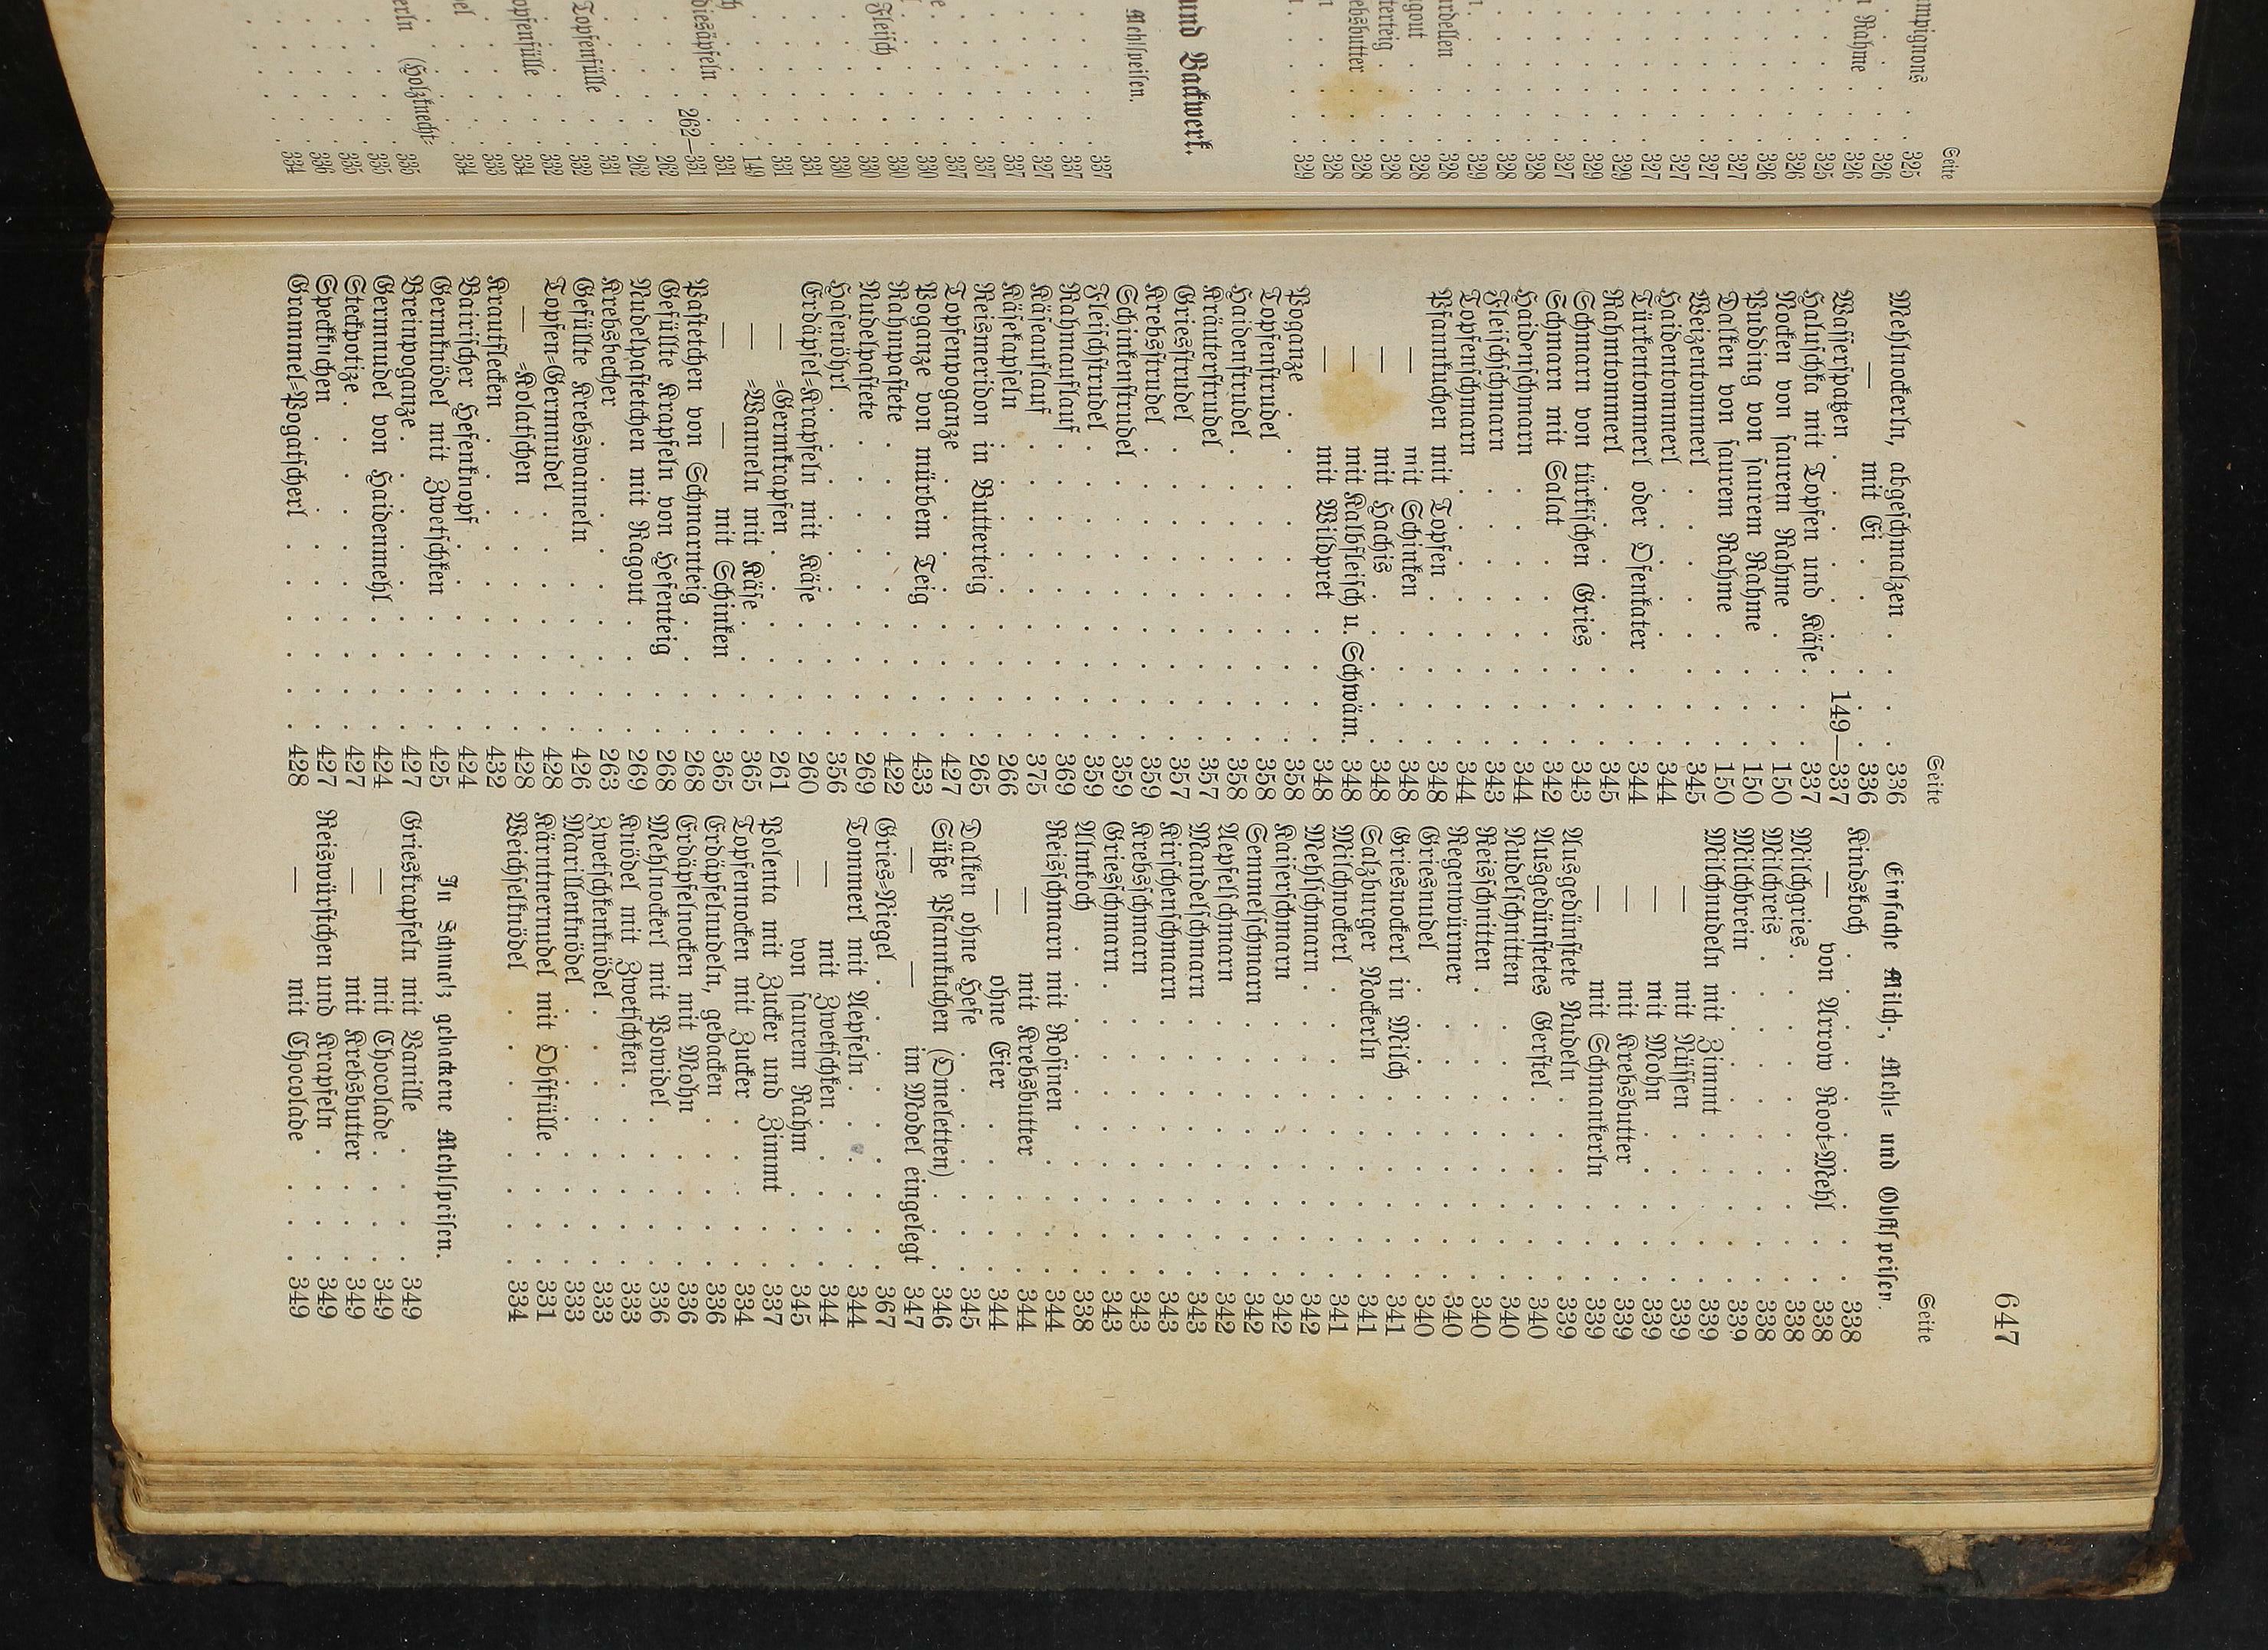 mpignons . . 325
n Rahme . . 326
326
325
326
326
327
327
327
327
329
329
327
328
328
329
rdellen . . 328
gout . . 328
terteig . . 328
ebsbutter . . 328
328
329
und Backwerk.
Mehlspeisen.
337
337
327
337
337
337
330
330
Fleisch . . 330
330
331
331
149
331
diesäpfeln . 262—331
262
262
331
Topfenfülle . . 332
332
opfenfülle . . 334
333
334
erln (Holzknecht-
335
335
335
336
334
Seite
647
Seite
Mehlnockerln, abgeschmalzen . . . 336
— mit Ei . . . 336
Wasserspatzen . . . 149—337
Haluschka mit Topfen und Käse . . 337
Nocken von saurem Rahme . . . 150
Pudding von saurem Rahme . . . 150
Dalken von saurem Rahme . . . 150
Weizentommerl . . . 345
Haidentommerl . . . 344
Türkentommerl oder Ofenkater . . . 344
Rahmtommerl . . . 345
Schmarn von türkischen Gries . . . 343
Schmarn mit Salat . . . 342
Haidenschmarn . . . 344
Fleischschmarn . . . 343
Topfenschmarn . . . 344
Pfannkuchen mit Topfen . . . 348
— mit Schinken . . . 348
— mit Hachis . . . 348
— mit Kalbfleisch u. Schwäm. 348
— mit Wildpret . . . 348
Poganze . . . 358
Topfenstrudel . . . 358
Haidenstrudel . . . 358
Kräuterstrudel . . . 357
Griesstrudel . . . 357
Krebsstrudel . . . 359
Schinkenstrudel . . . 359
Fleischstrudel . . . 359
Rahmauflauf . . . 369
Käseauflauf . . . 375
Käsekapseln . . . 266
Reismeridon in Butterteig . . . 265
Topfenpoganze . . . 427
Poganze von mürbem Teig . . . 433
Rahmpastete . . . 422
Nudelpastete . . . 269
Hasenöhrl . . . 356
Erdäpfel=Krapfeln mit Käse . . . 260
— =Germkrapfen . . . 261
— =Wanneln mit Käse . . . 365
— — mit Schinken . . . 365
Pastetchen von Schmarnteig . . . 268
Gefüllte Krapfeln von Hefenteig . . . 268
Nudelpastetchen mit Ragout . . . 269
Krebsbecher . . . 263
Gefüllte Krebswanneln . . . 426
Topfen=Germnudel . . . 428
— =Kolatschen . . . 428
Krautflecken . . . 432
Bairischer Hefenknopf . . . 424
Germknödel mit Zwetschken . . . 425
Breinpoganze . . . 427
Germnudel von Haidenmehl . . . 424
Steckpotize . . . 427
Speckkuchen . . . 427
Grammel=Pogatscherl . . . 428
Seite
Einfache Milch-, Mehl= und Obstspeisen.
Kindskoch . . . 338
— von Arrow Root=Mehl . . 338
Milchgries . . . 338
Milchreis . . . 338
Milchbrein . . . 339
Milchnudeln mit Zimmt . . . 339
— mit Nüssen . . . 339
— mit Mohn . . . 339
— mit Krebsbutter . . . 339
— mit Schmankerln . . . 339
Ausgedünstete Nudeln . . . 339
Ausgedünstetes Gerstel . . . 340
Nudelschnitten . . . 340
Reisschnitten . . . 340
Regenwürmer . . . 340
Griesnudel . . . 340
Griesnockerl in Milch . . . 341
Salzburger Nockerln . . . 341
Milchnockerl . . . 341
Mehlschmarn . . . 342
Kaiserschmarn . . . 342
Semmelschmarn . . . 342
Aepfelschmarn . . . 342
Mandelschmarn . . . 343
Kirschenschmarn . . . 343
Krebsschmarn . . . 343
Griesschmarn . . . 343
Almkoch . . . 338
Reisschmarn mit Rosinen . . . 344
— mit Krebsbutter . . . 344
— ohne Eier . . . 344
Dalken ohne Hefe . . . 345
Süße Pfannkuchen (Omeletten) . . . 346
— — im Model eingelegt . 347
Gries=Riegel . . . 367
Tommerl mit Aepfeln . . . 344
— mit Zwetschken . . . 344
— von saurem Rahm . . . 345
Polenta mit Zucker und Zimmt . . . 337
Topfennocken mit Zucker . . . 334
Erdäpfelnudeln, gebacken . . . 336
Erdäpfelnocken mit Mohn . . . 336
Mehlnockerl mit Powidel . . . 336
Knödel mit Zwetschken . . . 333
Zwetschkenknödel . . . 333
Marillenknödel . . . 333
Kärntnernudel mit Obstfülle . . . 331
Weichselknödel . . . 334
In Schmalz gebackene Mehlspeisen.
Grieskrapfeln mit Vanille . . . 349
— mit Chocolade . . . 349
— mit Krebsbutter . . . 349
Reiswürstchen und Krapfeln . . . 349
— mit Chocolade . . . 349